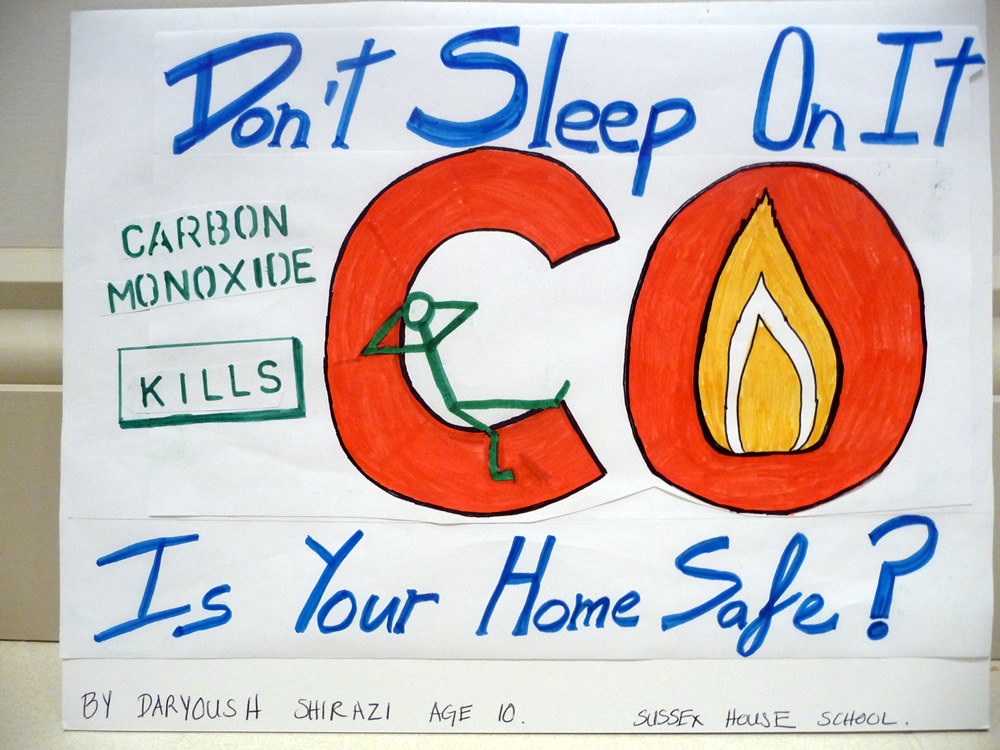 Don't Sleep On It
CARBON
MONOXIDE
KILLS
CO
Is Your Home Safe?
BY DARYOUSH SHIRAZI AGE 10.
SUSSEX HOUSE SCHOOL.